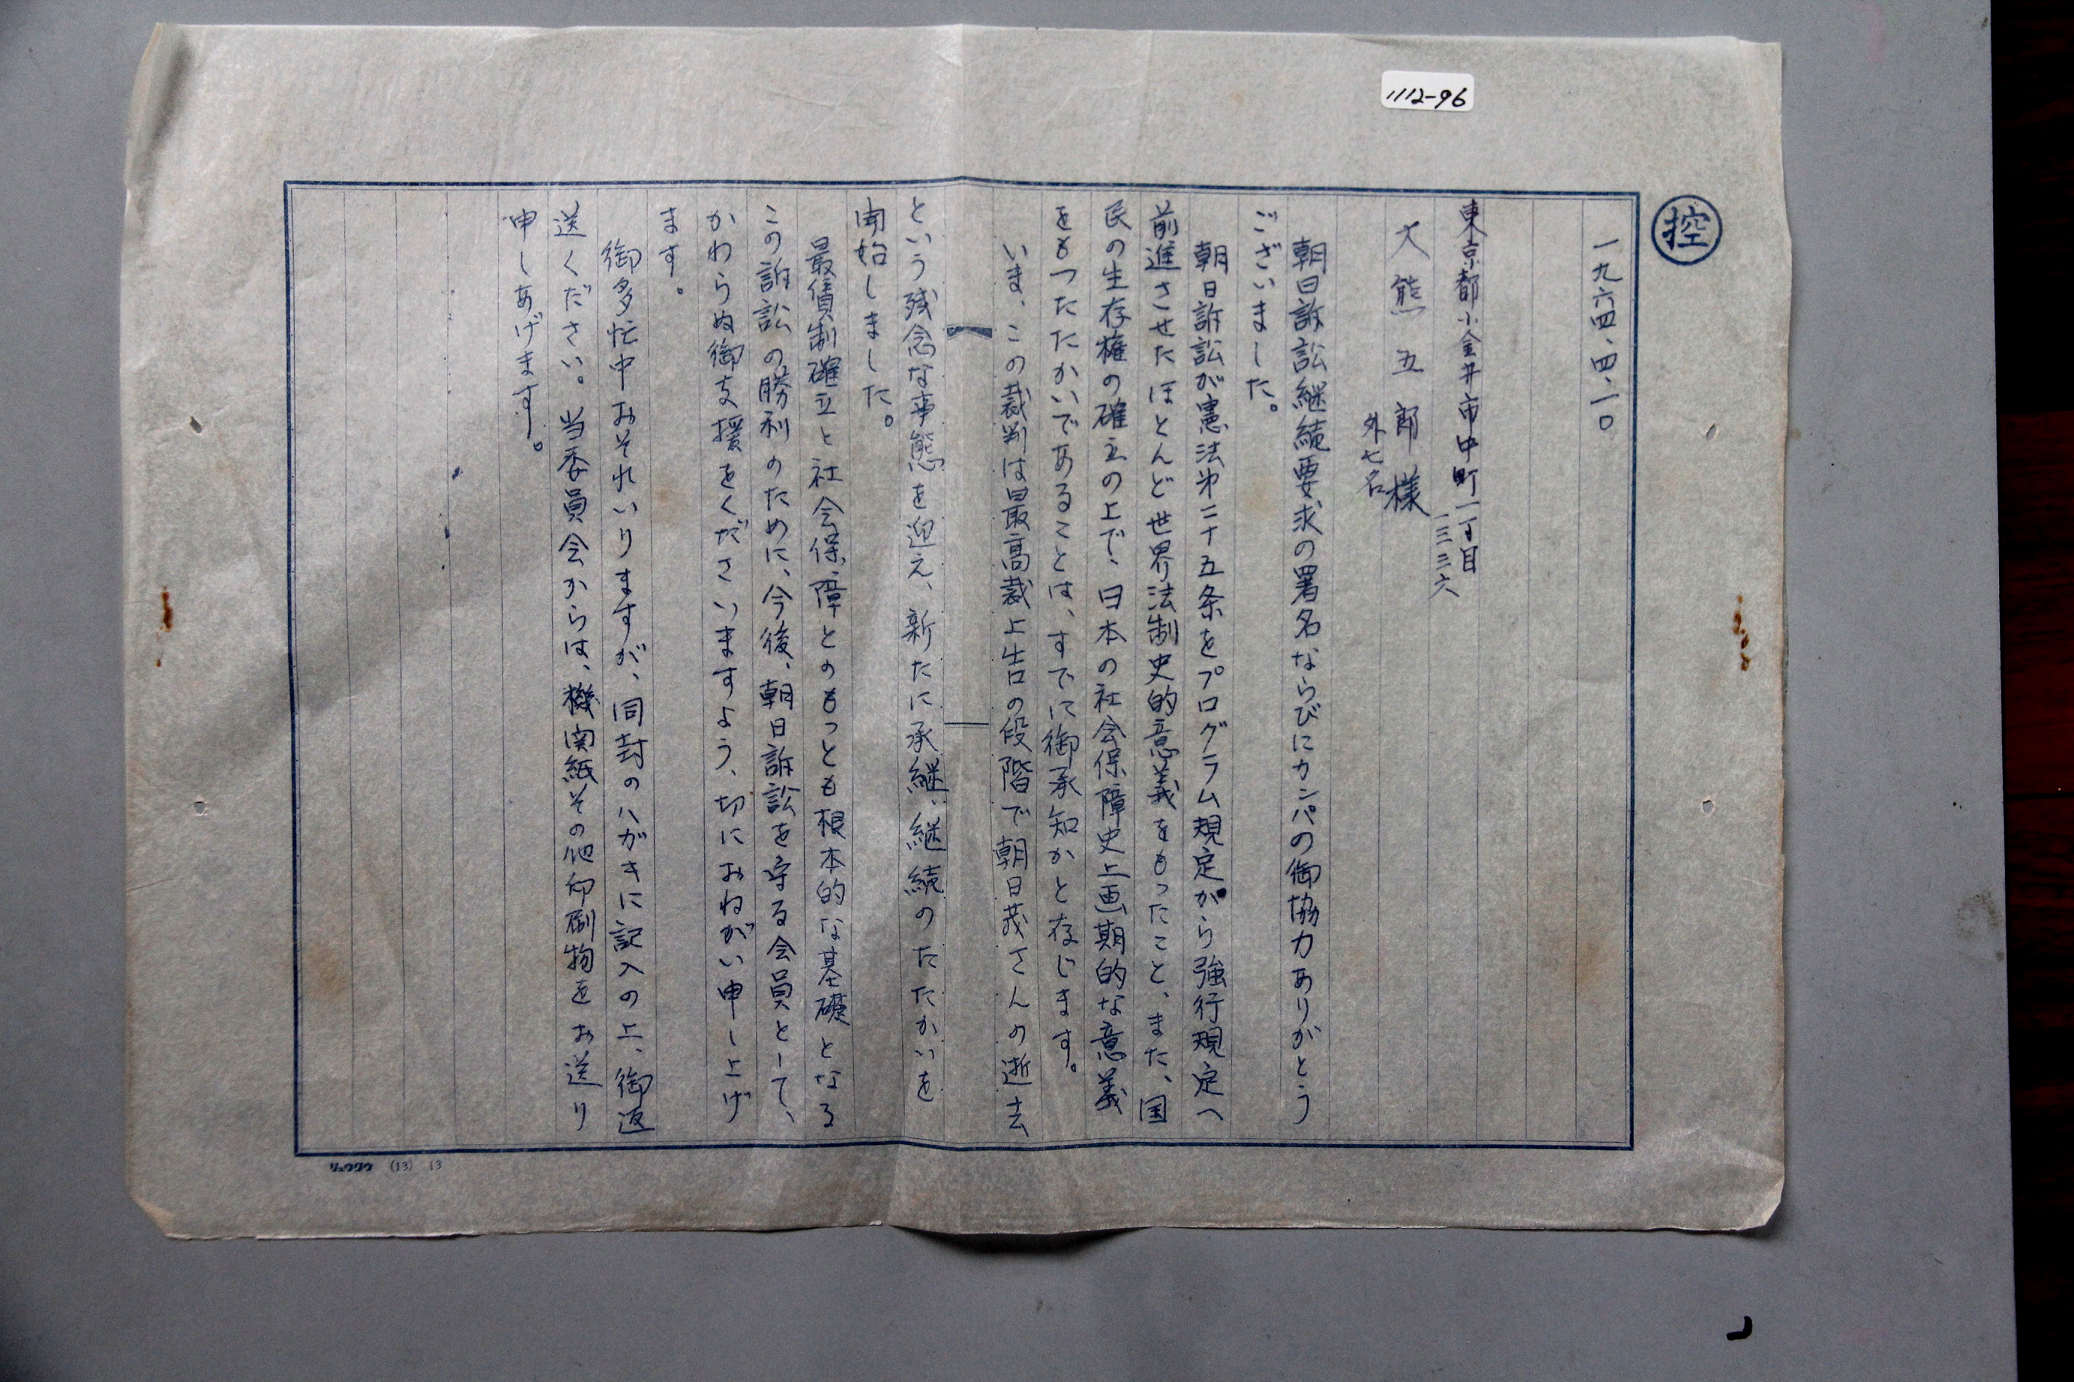 1112-96
控
一九六四、四、二〇
東京都小金井市中町一丁目
一三三六
大熊五郎様
外七名
朝日訴訟継続要求の署名ならびにカンパの御協力ありがとう
ございました。
朝日訴訟が憲法第二十五条をプログラム規定がら強行規定へ
前進させたほとんど世界法制史的意義をもったこと、また、国
民の生存権の確立の上で、日本の社会保障史上画期的な意義
をもつたたかいであることは、すでに御承知かと存じます。
いま、この裁判は最高裁上告の段階で朝日茂さんの逝去
という残念な事態を迎え、新たに承継、継続のたたかいを
開始しました。
最賃制確立と社会保障とのもっとも根本的な基礎となる
この訴訟の勝利のために、今後、朝日訴訟を守る会員として、
かわらぬ御支援をくださいますよう、切におねがい申し上げ
ます。
御多忙中おそれいりますが、同封のハがきに記入の上、御返
送ください。当委員会からは、機関紙その他印刷物をお送り
申しあげます。
リュウグウ (13) 13